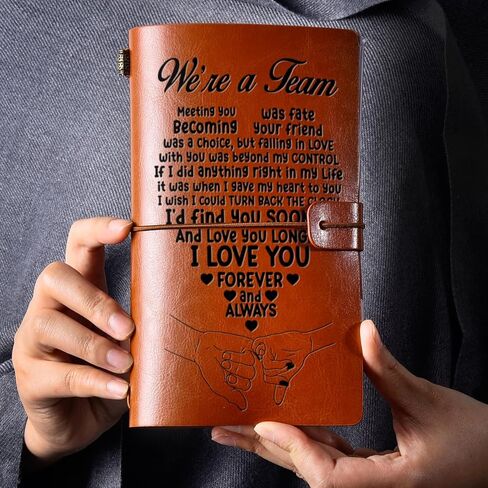 We're a Team
Meeting you was fate
Becoming your friend
was a choice, but falling in LOVE
with you was beyond my CONTROL
If I did anything right in my Life
it was when I gave my heart to you
I wish I could TURN BACK THE
I'd find you
And Love you
I LOVE YOU
FOREVER
and
ALWAYS